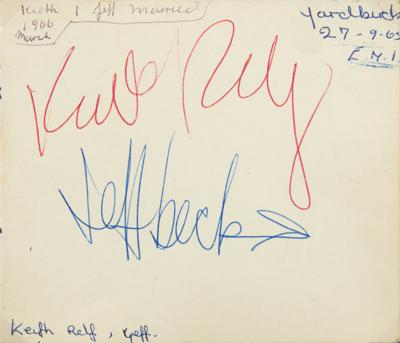 Keith & Jeff married
1966
March
Yardbirds
27-9-65
E.M.I.
Keith Relf
Jeff beck
Keith Relf, Jeff.